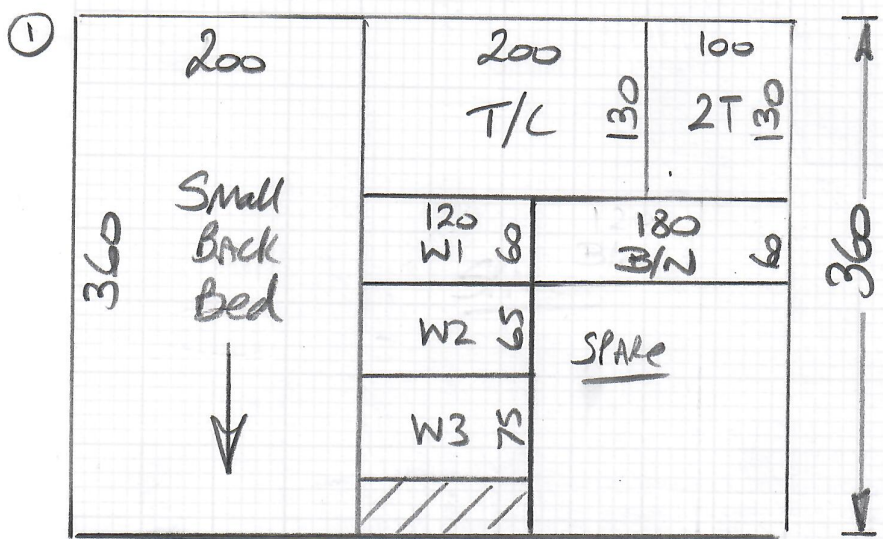 1
200
360
Small
Back
Bed
200
T/C
130
100
2T
130
120
W1
60
180
B/N
60
W2
65
W3
75
SPARE
360